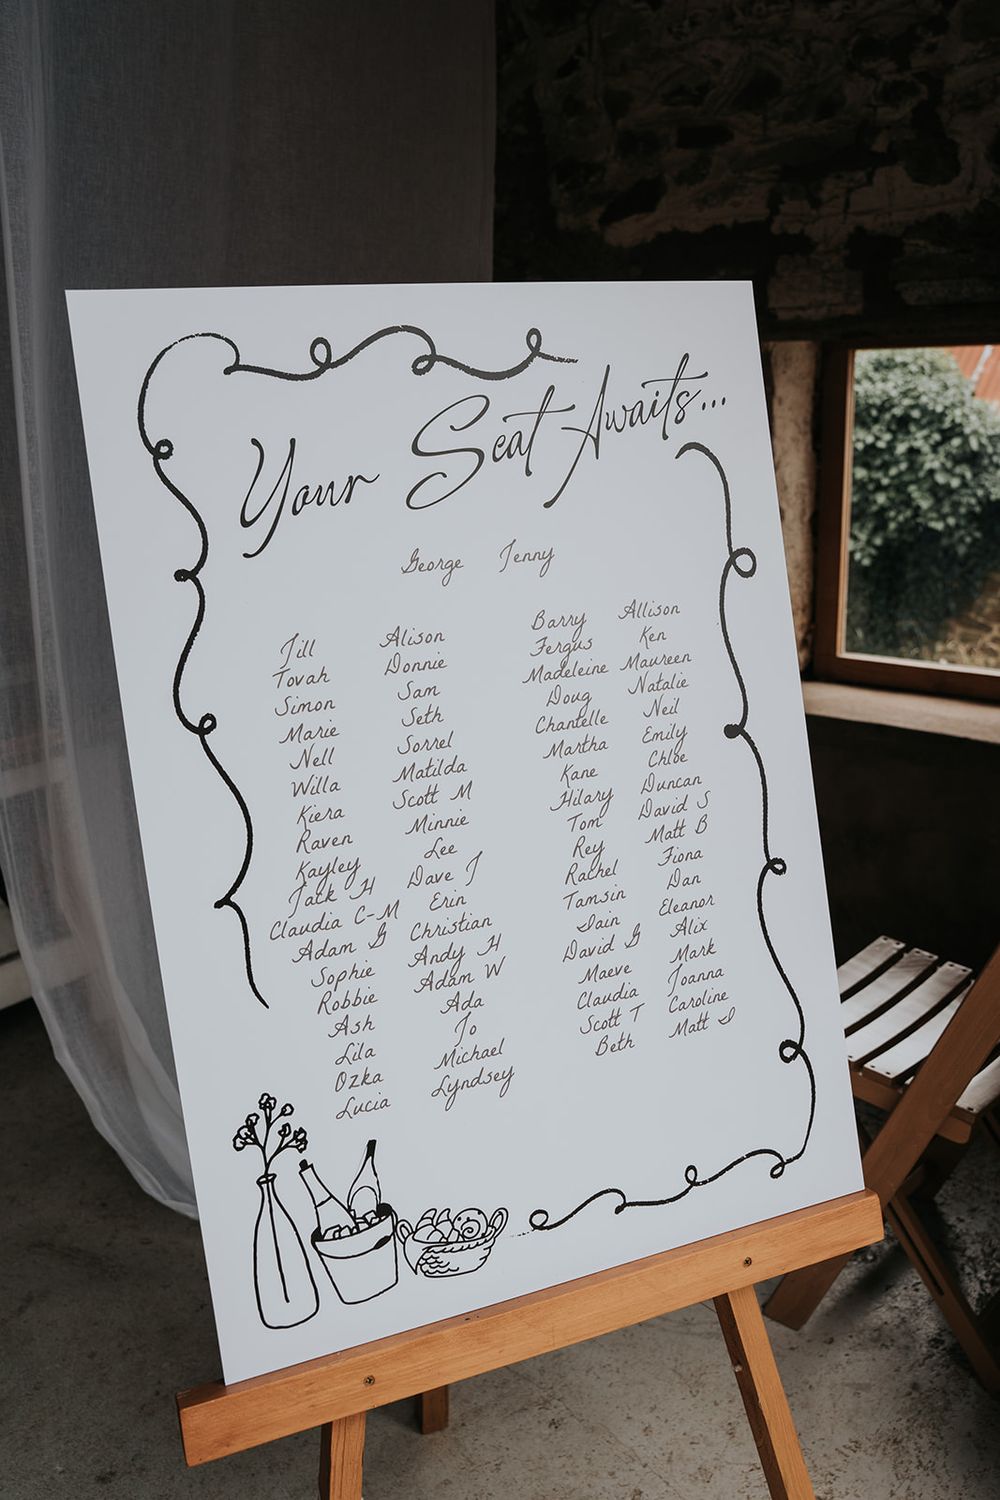 Your Seat Awaits...
George Jenny
Jill Alison
Tovah Donnie
Simon Sam
Marie Seth
Nell Sorrel
Willa Matilda
Kiera Scott M
Raven Minnie
Kayley Lee
Jack H Dave J
Claudia C-M Erin
Adam G Christian
Sophie Andy H
Robbie Adam W
Ash Ada
Lila Jo
Ozka Michael
Lucia Lyndsey
Barry Allison
Fergus Ken
Madeleine Maureen
Doug Natalie
Chantelle Neil
Martha Emily
Kane Chloe
Hilary Duncan
Tom David S
Rey Matt B
Rachel Fiona
Tamsin Dan
Iain Eleanor
David G Alix
Maeve Mark
Claudia Joanna
Scott T Caroline
Beth Matt I